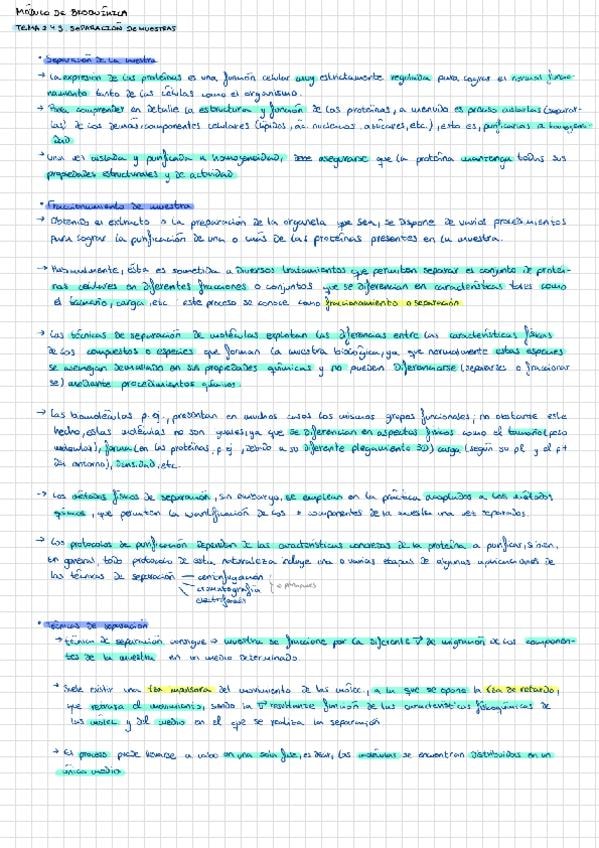 MÓDULO DE BIOQUÍMICA
TEMA 2 y 3. SEPARACIÓN DE MUESTRAS
• Separación de la muestra
→ La expresión de las proteínas es una función celular muy estrictamente regulada para lograr el normal funcio-
namiento tanto de las células como el organismo.
→ Para comprender en detalle la estructura y función de las proteínas, a menudo es preciso aislarlas (separar-
las) de los demás componentes celulares (lípidos, ác. nucleicos, azúcares, etc.), esto es, purificarlas a homogenei-
dad
→ Una vez aislada y purificada a homogeneidad, debe asegurarse que la proteína mantenga todas sus
propiedades estructurales y de actividad
• Fraccionamiento de muestra
→ Obtenido el extracto o la preparación de la organela que sea, se dispone de varios procedimientos
para lograr la purificación de una o más de las proteínas presentes en la muestra.
→ Habitualmente, ésta es sometida a diversos tratamientos que permiten separar el conjunto de proteí-
nas celulares en diferentes fracciones o conjuntos que se diferencian en características tales como
el tamaño, carga, etc este proceso se conoce como fraccionamiento o separación
→ Las técnicas de separación de moléculas explotan las diferencias entre las características físicas
de los compuestos o especies que forman la muestra biológica, ya que normalmente estas especies
se asemejan demasiado en sus propiedades químicas y no pueden diferenciarse (separarse o fraccionar
se) mediante procedimientos químicos
→ Las biomoléculas p. ej., presentan en muchos casos los mismos grupos funcionales; no obstante este
hecho, estas moléculas no son iguales ya que se diferencian en aspectos físicos como el tamaño (peso
molecular), forma (en las proteínas, p. ej, debido a su diferente plegamiento 3D) carga (según su pI y el pH
del entorno), densidad, etc.
→ Los métodos físicos de separación, sin embargo, se emplean en la práctica acoplados a los métodos
químicos, que permiten la cuantificación de los ≠ componentes de la muestra una vez separados.
→ Los protocolos de purificación dependen de las características concretas de la proteína a purificar, si bien,
en general, todo protocolo de esta naturaleza incluye una o varias etapas de algunas aplicaciones de
las técnicas de separación — centrifugación
cromatografía
electroforesis
• Técnicas de separación
→ técnica de separación consigue → muestra se fraccione por la diferente V de migración de los componen-
tes de la muestra en un medio determinado
→ Suele existir una fza impulsora del movimiento de las moléc., a la que se opone la fza de retardo,
que retrasa el movimiento, siendo la V resultante función de las características fisicoquímicas de
las moléc y del medio en el que se realiza la separación
→ El proceso puede llevarse a cabo en una sola fase, es decir, las moléculas se encuentran distribuidas en un
único medio